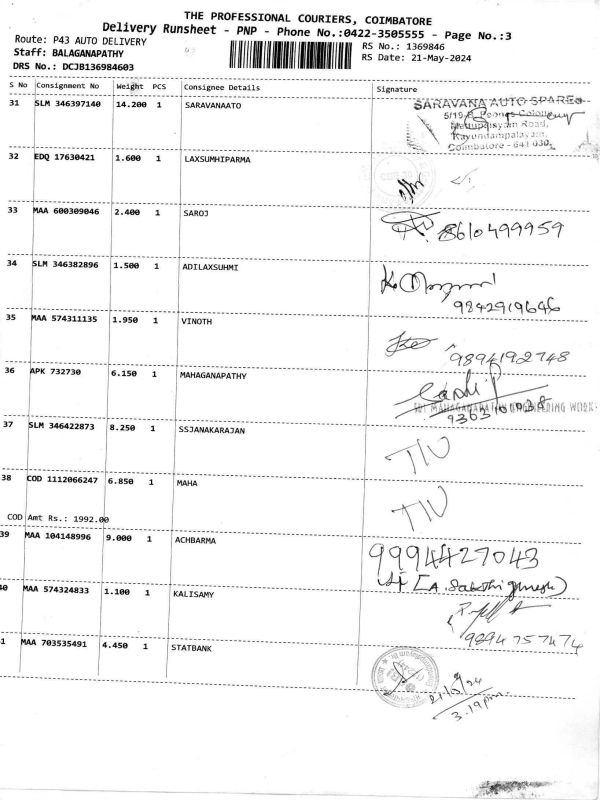 THE PROFESSIONAL COURIERS, COIMBATORE
Delivery Runsheet - PNP - Phone No.:0422-3505555 - Page No.:3
Route: P43 AUTO DELIVERY
RS No.: 1369846
Staff: BALAGANAPATHY
RS Date: 21-May-2024
DRS No.: DCJB136984603
S No Consignment No Weight PCS Consignee Details Signature
31 SLM 346397140 14.200 1 SARAVANAATO
SARAVANA AUTO SPARES
Coimbatore - 641 030.
32 EDQ 17630421 1.600 1 LAXSUMHIPARMA
33 MAA 600309046 2.400 1 SAROJ
8610499959
34 SLM 346382896 1.500 1 ADILAXSUHMI
9842919646
35 MAA 574311135 1.950 1 VINOTH
9894192748
36 APK 732730 6.150 1 MAHAGANAPATHY
37 SLM 346422873 8.250 1 SSJANAKARAJAN
38 COD 1112066247 6.850 1 MAHA
COD Amt Rs.: 1992.00
39 MAA 104148996 9.000 1 ACHBARMA
9994427043
40 MAA 574324833 1.100 1 KALISAMY
9894757474
1 MAA 703535491 4.450 1 STATBANK
3.19pm.